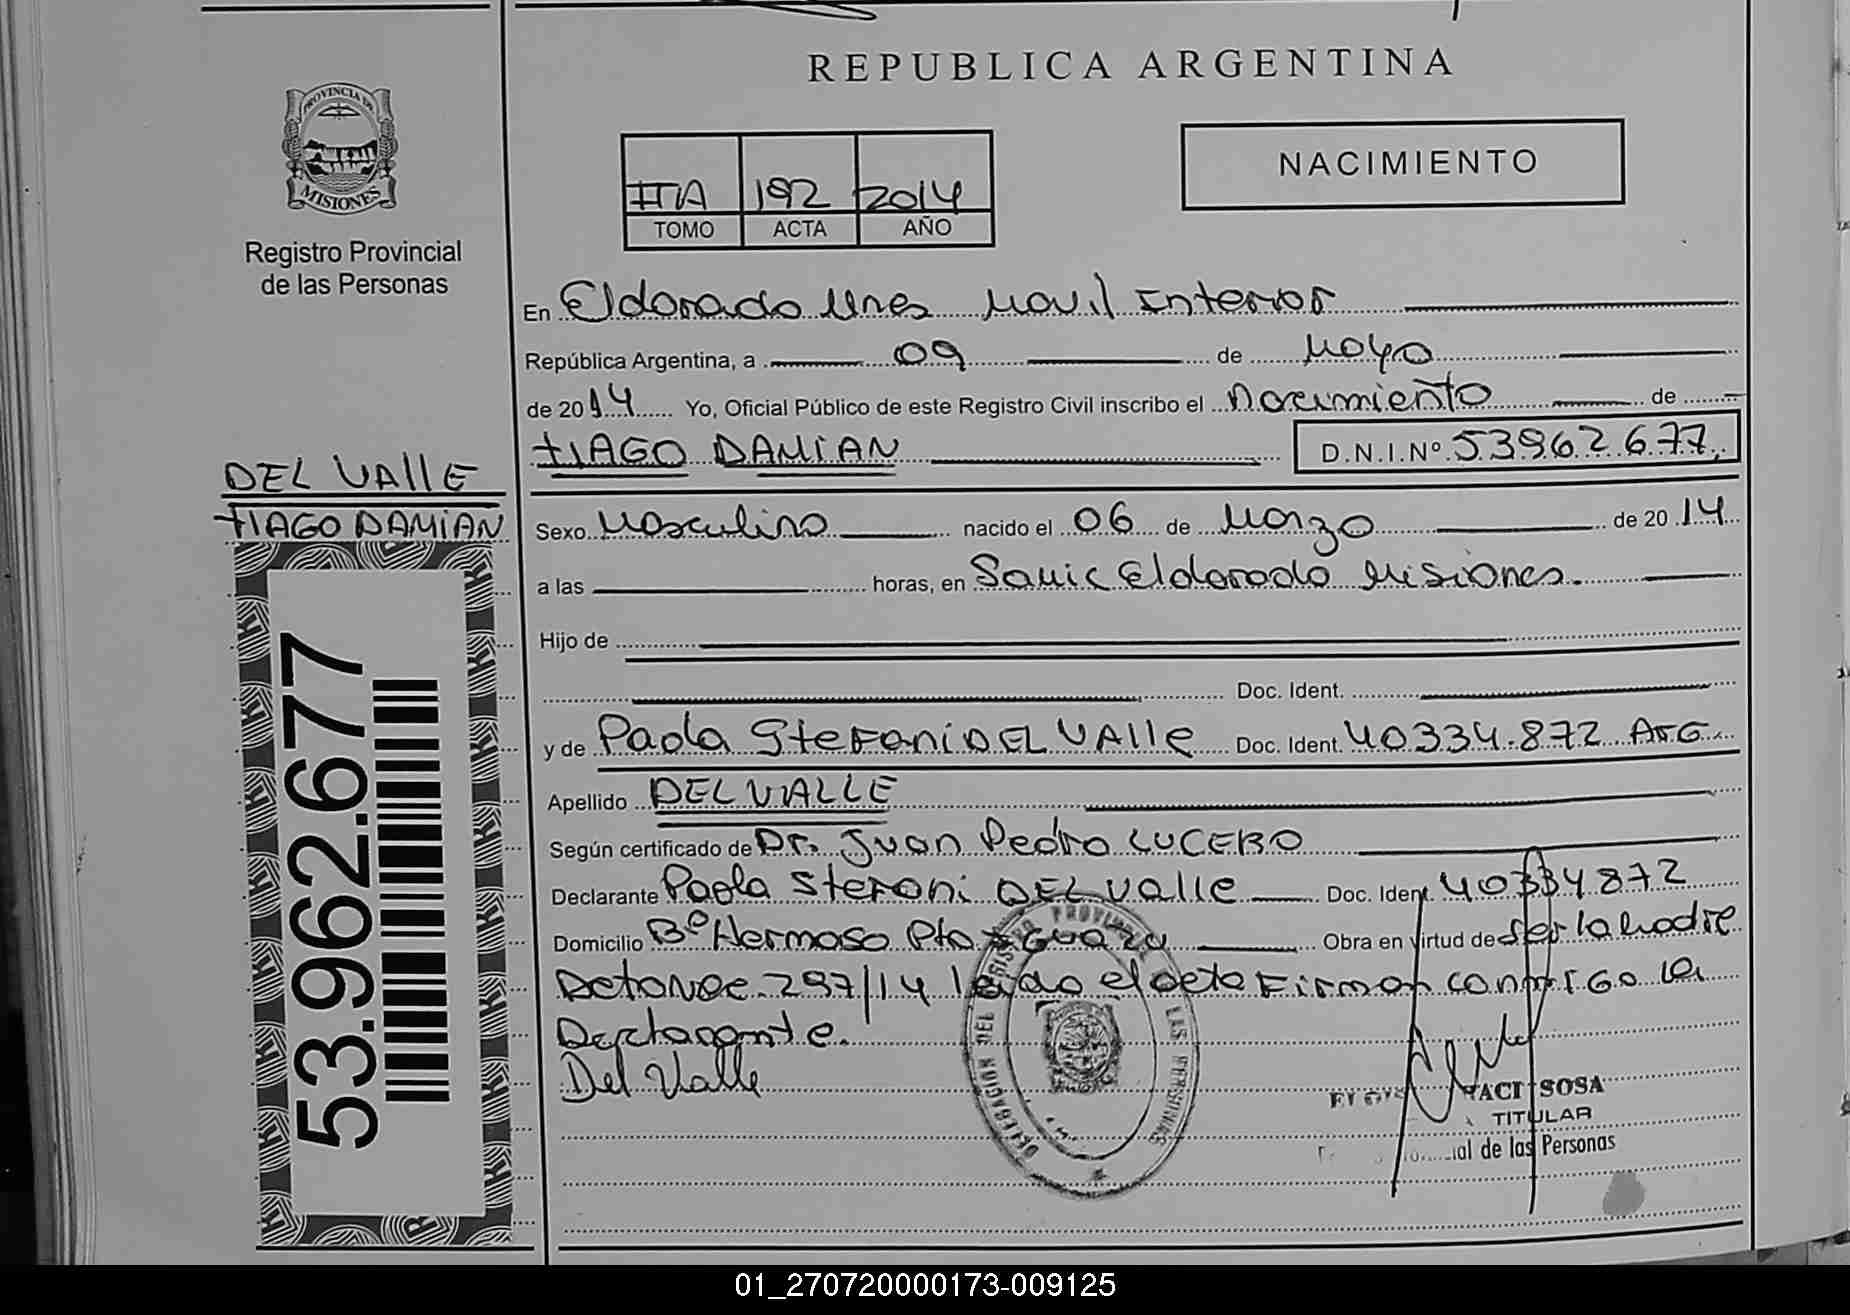 REPUBLICA ARGENTINA
PROVINCIA DE
MISIONES
Registro Provincial
de las Personas
IIA 192 2014
TOMO ACTA AÑO
NACIMIENTO
En Eldorado Unes Movil Interior
República Argentina, a 09 de Mayo
de 2014 Yo, Oficial Público de este Registro Civil inscribo el Nacimiento de
TIAGO DAMIAN D.N.I.Nº 53962677
DEL VAllE
TIAGO DAMIAN
Sexo Masculino nacido el 06 de Marzo de 2014
a las horas, en Samic Eldorado Misiones.
Hijo de
Doc. Ident.
y de Paola Stefani DEL VAllE Doc. Ident. 40334.872 ArG
Apellido DEL VALLE
Según certificado de Dr. Juan Pedro LUCERO
Declarante Paola Stefani DEL Valle Doc. Ident. 40334872
Domicilio Bº Hermoso Pto Iguazu Obra en virtud de ser la Madre
297/14 leido el acta Firman conmigo la
Declarante.
Del Valle
53.962.677
DELEGACION DEL REGISTRO PROVINCIAL DE LAS PERSONAS
SOSA
TITULAR
de las Personas
01_270720000173-009125